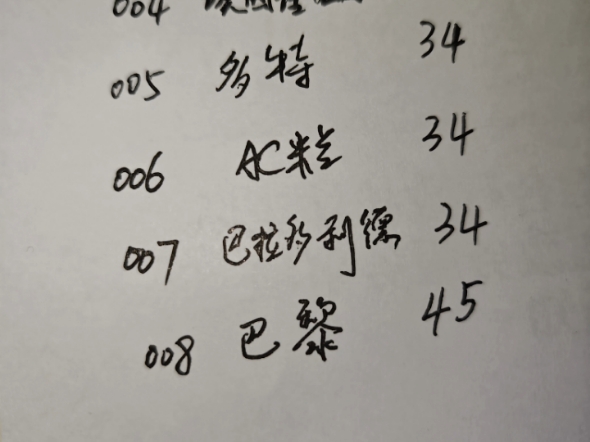 004
005 多特 34
006 AC米兰 34
007 巴拉多利德 34
008 巴黎 45